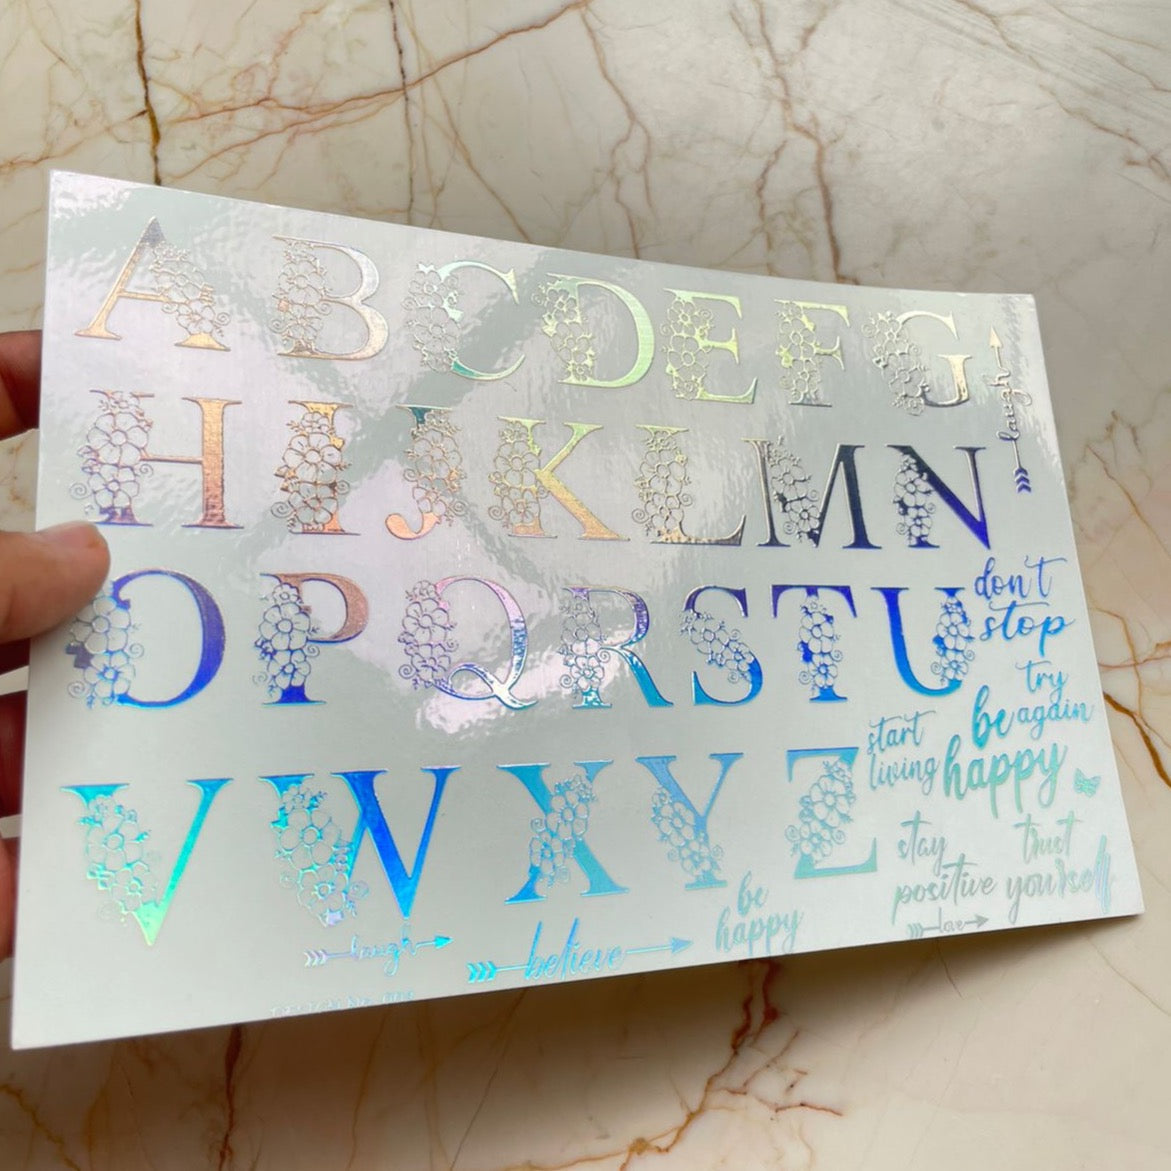 A B C D E F G
laugh
H I J K L M N
O P Q R S T U
don't
stop
try
again
be
happy
start
living
V W X Y Z
stay
positive
trust
yourself
love
be
happy
laugh
believe